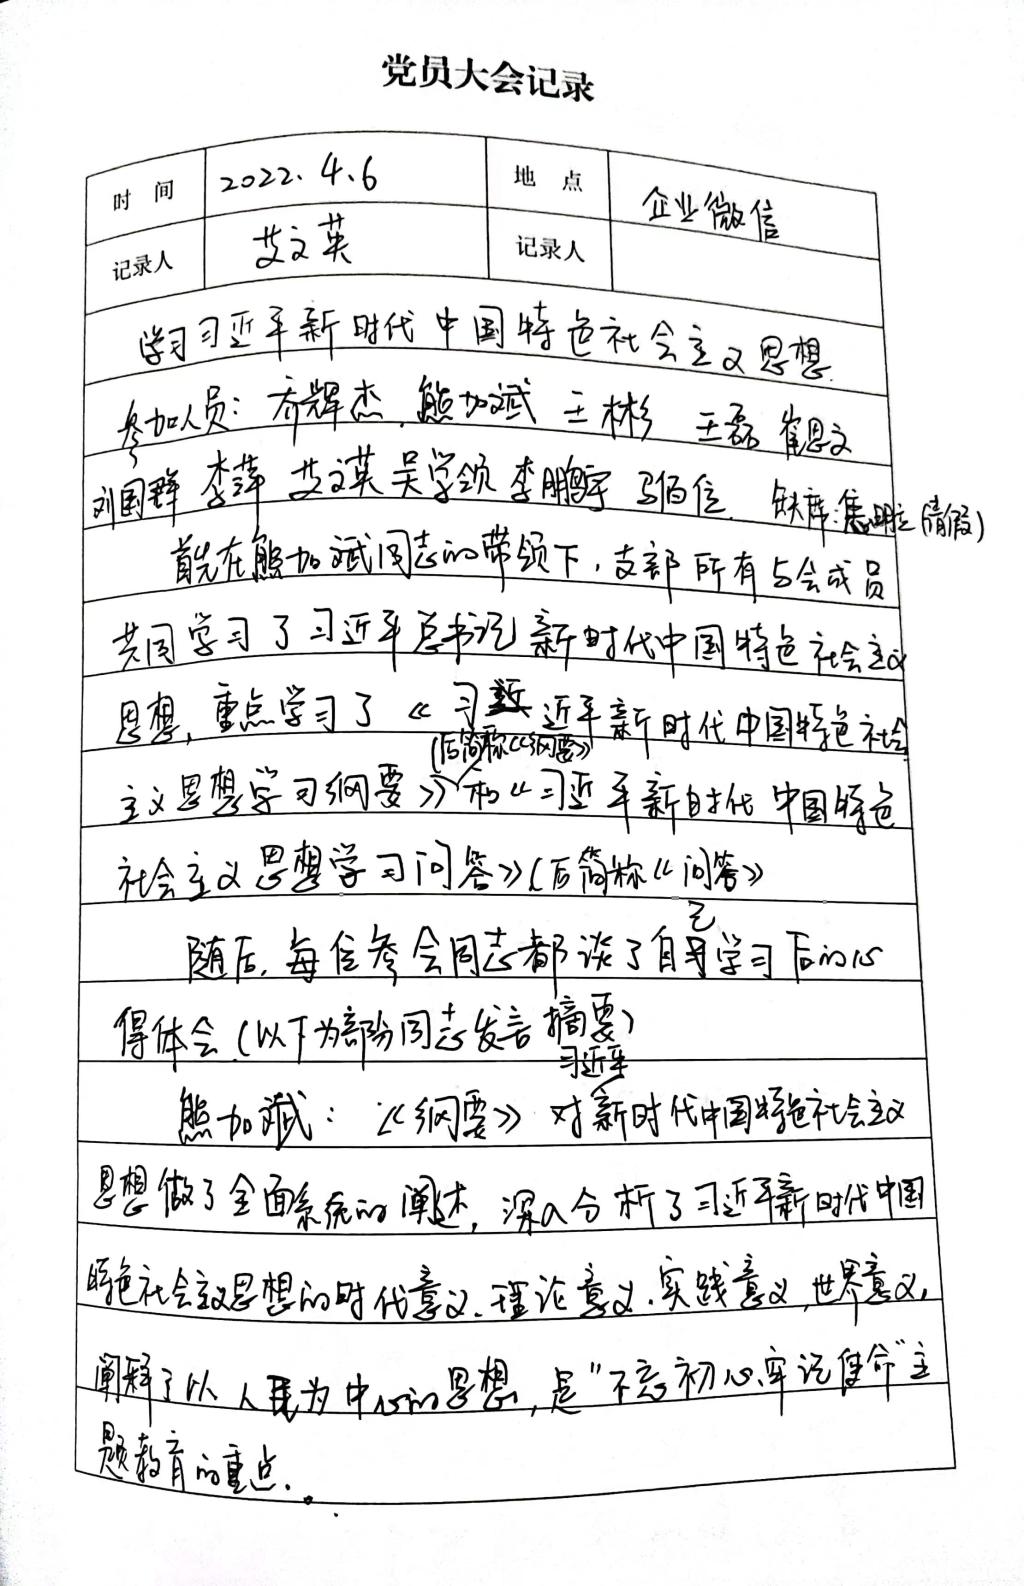 党员大会记录
时 间 2022.4.6 地 点 企业微信
记录人 艾文英 记录人
学习习近平新时代中国特色社会主义思想.
参加人员: 乔辉杰、熊加斌 王彬 王磊 崔思文
刘国群 李萍 艾文英 吴学领 李鹏宇 马佰位. 缺席: 明立(请假)
首先在熊加斌同志的带领下,支部所有与会成员
共同学习了习近平总书记新时代中国特色社会主义
思想,重点学习了《习近平新时代中国特色社会
(后简称《纲要》)
主义思想学习纲要》和《习近平新时代中国特色
社会主义思想学习问答》(后简称《问答》
随后,每位参会同志都谈了自己学习后的心
得体会(以下为部分同志发言摘要)
习近平
熊加斌:《纲要》对新时代中国特色社会主义
思想做了全面系统的阐述,深入分析了习近平新时代中国
特色社会主义思想的时代意义、理论意义、实践意义,世界意义,
阐释了以人民为中心的思想,是"不忘初心、牢记使命"主
题教育的重点.